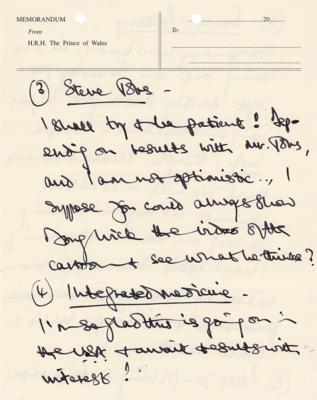 MEMORANDUM
From
H.R.H. The Prince of Wales
20
To
③ Steve Jobs -
I shall try & be patient! Dep-
ending on results with Mr. Jobs,
and I am not optimistic.., I
suppose you could always show
Wick the video of the
cartoon & see what he thinks?
④ Integrated medicine
I'm so glad this is going on in
the USA & await results with
interest!